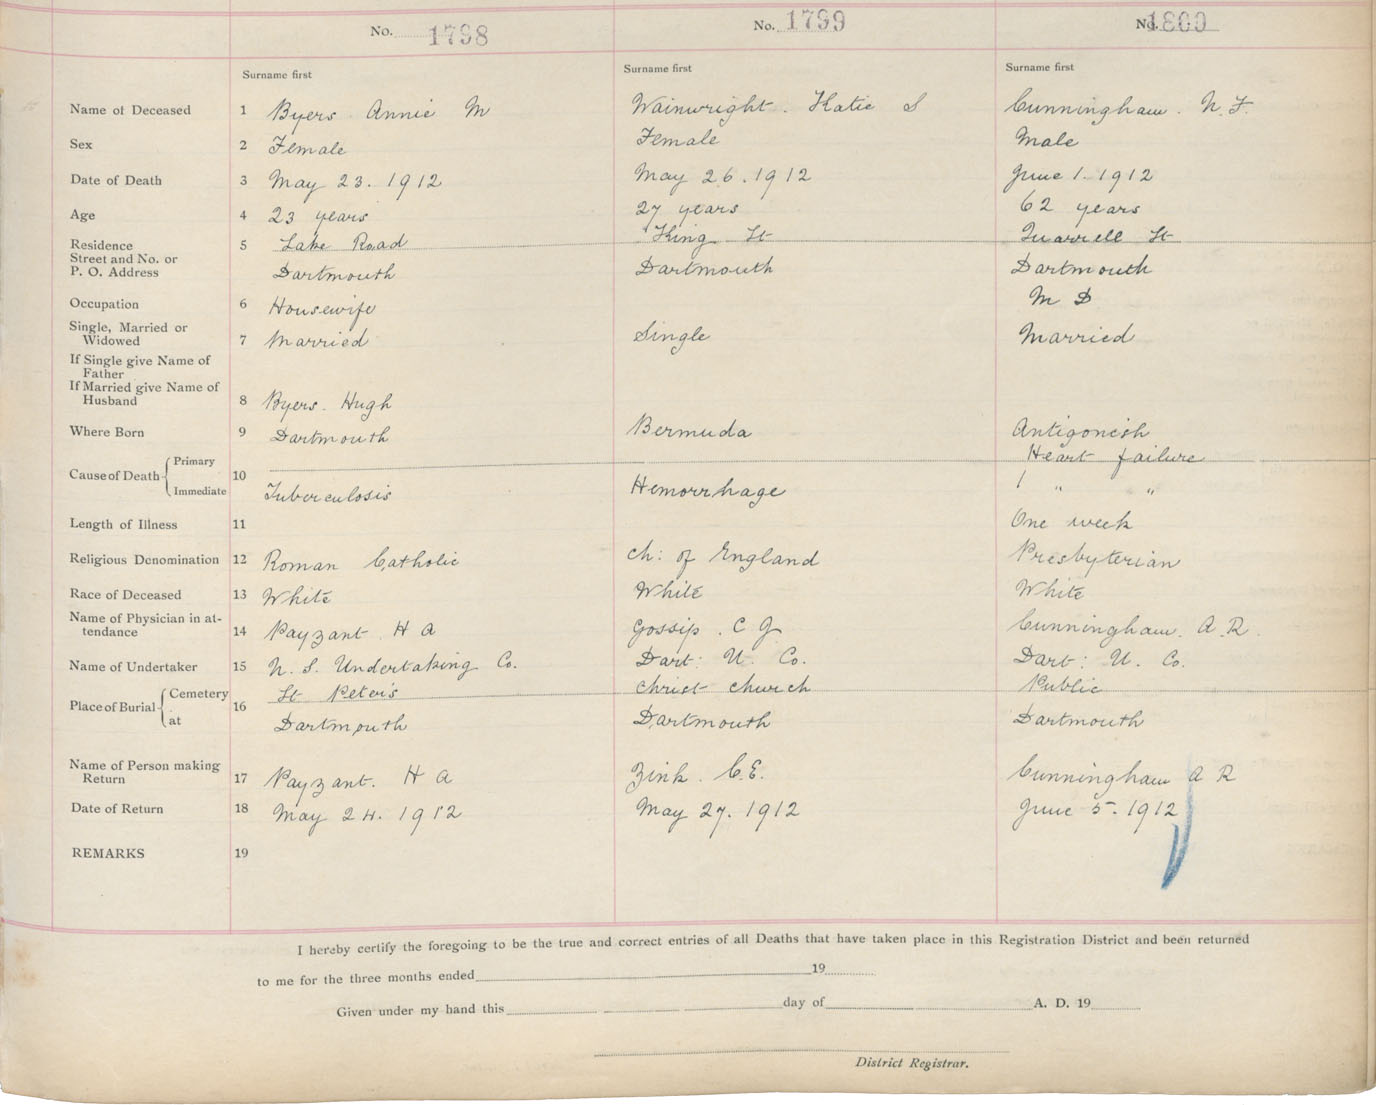 No. 1798 No. 1799 No. 1800
Surname first Surname first Surname first
Name of Deceased 1 Byers Annie M Wainwright. Katie S Cunningham. N. F.
Sex 2 Female Female Male
Date of Death 3 May 23. 1912 May 26. 1912 June 1. 1912
Age 4 23 years 27 years 62 years
Residence 5 Lake Road King St Quarrell St
Street and No. or
P. O. Address Dartmouth Dartmouth Dartmouth
Occupation 6 Housewife M D
Single, Married or
Widowed 7 Married Single Married
If Single give Name of
Father
If Married give Name of
Husband 8 Byers. Hugh
Where Born 9 Dartmouth Bermuda Antigonish
Cause of Death Primary 10 Heart failure
Immediate Tuberculosis Hemorrhage " "
Length of Illness 11 One week
Religious Denomination 12 Roman Catholic Ch: of England Presbyterian
Race of Deceased 13 White White White
Name of Physician in at-
tendance 14 Payzant H A Gossip. C J Cunningham. A. R.
Name of Undertaker 15 N. S. Undertaking Co. Dart: U. Co. Dart: U. Co.
Place of Burial Cemetery 16 St Peter's Christ Church Public
at Dartmouth Dartmouth Dartmouth
Name of Person making
Return 17 Payzant. H A Zink. C. E. Cunningham A R
Date of Return 18 May 24. 1912 May 27. 1912 June 5. 1912
REMARKS 19
I hereby certify the foregoing to be the true and correct entries of all Deaths that have taken place in this Registration District and been returned
to me for the three months ended 19
Given under my hand this day of A. D. 19
District Registrar.